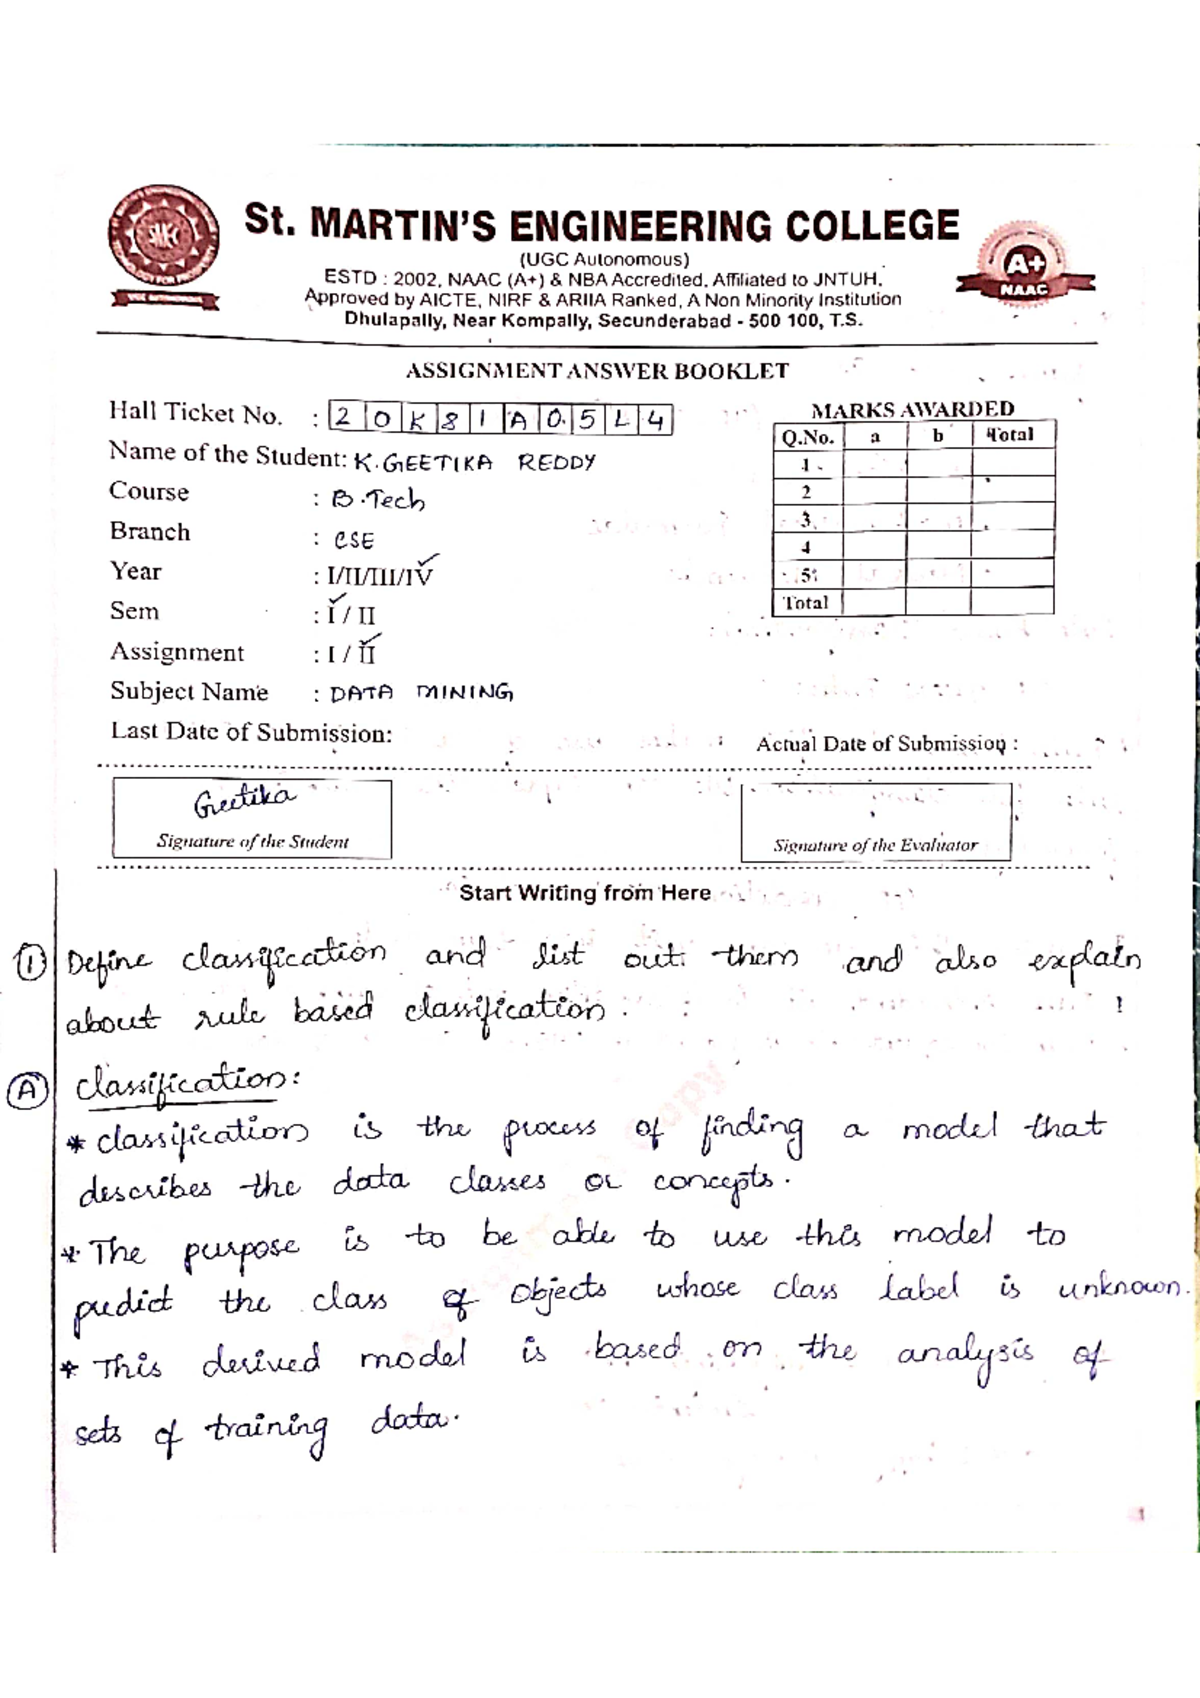 St. MARTIN'S ENGINEERING COLLEGE
(UGC Autonomous)
ESTD : 2002, NAAC (A+) & NBA Accredited, Affiliated to JNTUH,
Approved by AICTE, NIRF & ARIIA Ranked, A Non Minority Institution
Dhulapally, Near Kompally, Secunderabad - 500 100, T.S.
A+
NAAC
ASSIGNMENT ANSWER BOOKLET
Hall Ticket No. : 20K81A05L4
Name of the Student: K. GEETIKA REDDY
Course : B.Tech
Branch : CSE
Year : I/II/III/IV
Sem : I / II
Assignment : I / II
Subject Name : DATA MINING
Last Date of Submission:
MARKS AWARDED
Q.No. a b Total
1
2
3
4
5
Total
Actual Date of Submission :
Geetika
Signature of the Student
Signature of the Evaluator
Start Writing from Here
1 Define classification and list out them and also explain
about rule based classification.
A classification:
* classification is the process of finding a model that
describes the data classes or concepts.
* The purpose is to be able to use this model to
predict the class of objects whose class label is unknown.
* This derived model is based on the analysis of
sets of training data.
1